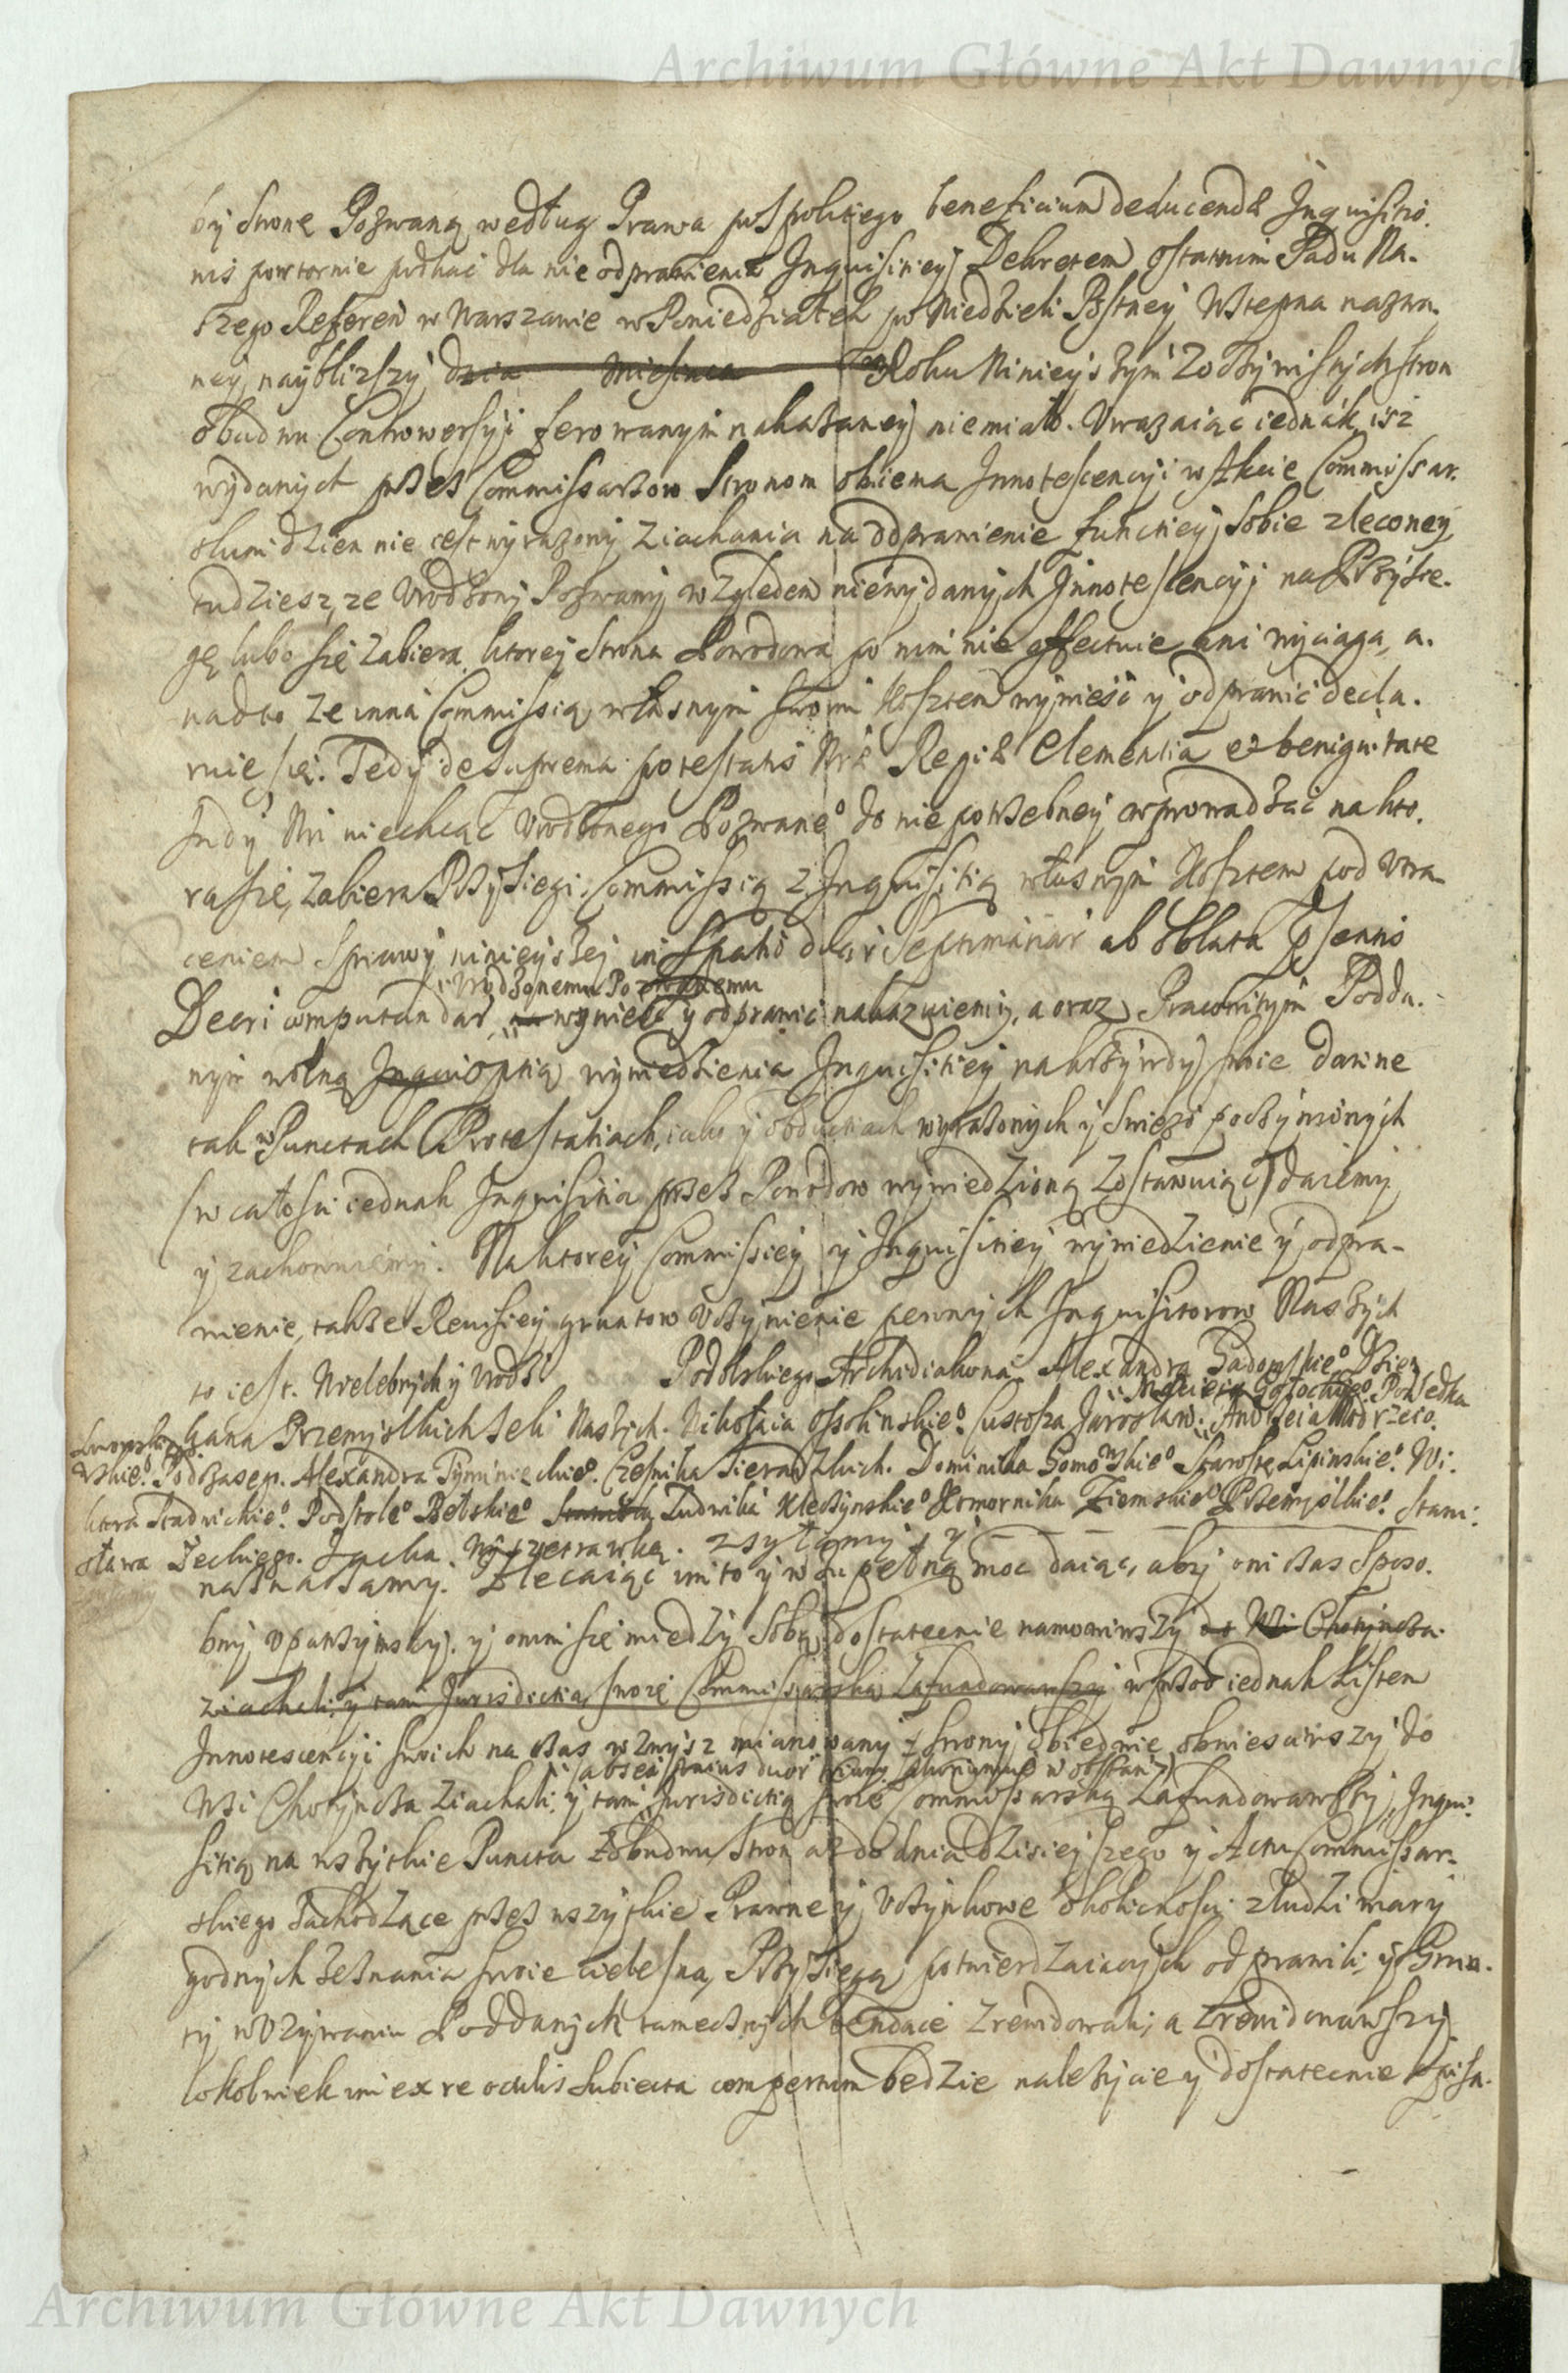 Archiwum Główne Akt Dawnych
by Stronę Pozwaną według Prawa pospolitego beneficium deducendæ Inquisitio.
nis powtornie podhać dla nie odprawienia Inquisitiey Dekretem ostatnim Sądu Na-
szego Referen w Warszawie w Poniedziałek po Niedzieli Postney Wstępna nazwa.
ney, naybliższy dnia Miesiąca Roku Ninieyszym z oczywistych stron
obudwu Controwersyi ferowanym nakazaney niemiało. Uwazaiąc iednak isz
wydanych przez Commissarzow Stronom obiema Innotescencyi w Akcie Commissar.
skim dzien nie iest wyrazony ziachania na odprawienie funkciey sobie zleconey
tudziesz, ze Urodzony Pozwany względem niewydanych Innotescencyj na Przysię.
gę lubo się zabiera, ktorey Strona Powodowa po nim nie effectuie ani wyciąga, a.
nadto ze inna Commissią własnym swoim Kosztem wynieść y odprawić decla.
ruie się. Tedy de suprema potestatis Nræ Regiæ Clementia et benignitate
Judy Nri niechcąc Urodzonego Pozwaneo do niepotrzebney wprowadzać na kto.
ra się zabiera Przysięgi, Commissią z Inquisitią własnym Kosztem pod utra-
ceniem Sprawy ninieyszey in Spatio duar Septimanar ab oblata psentis
Urodzonemu Pozwanemu
Decri computandar wynieść y odprawić nakazuiemy, a oraz Pracowitym Podda.
nym wolną Inqui optią wywiedzienia Inquisitiey na krzywdy swoie dawne
tak w Punctach Protestatiach, iako y obductiach wyrazonych y swiezo poczynionych
(w całosci iednak Inquisitia przez Powodow wywiedzioną zostawuiąc) daiemy
y zachowuiemy. Na ktorey Commissiey y Inquisitiey wywiedzienie y odpra-
wienie, takze Rewisiey gruntow uczynienie pewnych Inquisitorow Naszych
to iest. Wielebnych y Urodz: Podolskiego Archidiakona Alexandra Gadomskieo Dzien
Macieia Gołockieo Podsędka
kana Przemyslkich Seki Naszych. Nikołaia Ossolinskieo. Custosza Jarosław. Andrzeia Modrzeio.
wskieo. Podczasego. Alexandra Tyminieckieo. Czesnika Sieradzkich. Dominika Gomołskieo Starostę Lipinskieo. Wi.
ktora Stadnickieo. Podstoleo Bełskieo Ludwika Kleczynskieo Komornika Ziemskieo Przemyślkieo. Stani:
sława Jeckiego. Jacka. zsyłamy, y
naznaczamy. Zlecaiąc im to y w zupełną moc daiąc, aby oni czas sposo.
bny upatrzywszy. y onim się miedzy sobą dostatecznie namowiwszy do Wsi Chotyńcza
ziachali, y tam Jurisdictią swoię Commissarską zafundowawszy wprzod iednak Listem
Innotescencyi swoich na czas wzwysz mianowany strony obiedwie obniesiwszy do
Wsi Chotyńcza ziachali, y tam Jurisdictią swoię Commissarską zafundowawszy, Inqui.
sitią na wszytkie Puncta z obudwu stron aż do dnia dzisieyszego y Actu Commissar.
skiego zachodzące przez wszytkie Prawne y uczynkowe okolicznosci z ludzi wiary
godnych zeznania swoie cielesną Przysięgą potwierdzaiących odprawili, y Grun.
ty w uzywaniu Poddanych tamecznych będące zrewidowali, a zrewidowawszy
cokolwiek im ex re oculis subiecta compertum będzie należycie y dostatecznie spisa.
Archiwum Główne Akt Dawnych